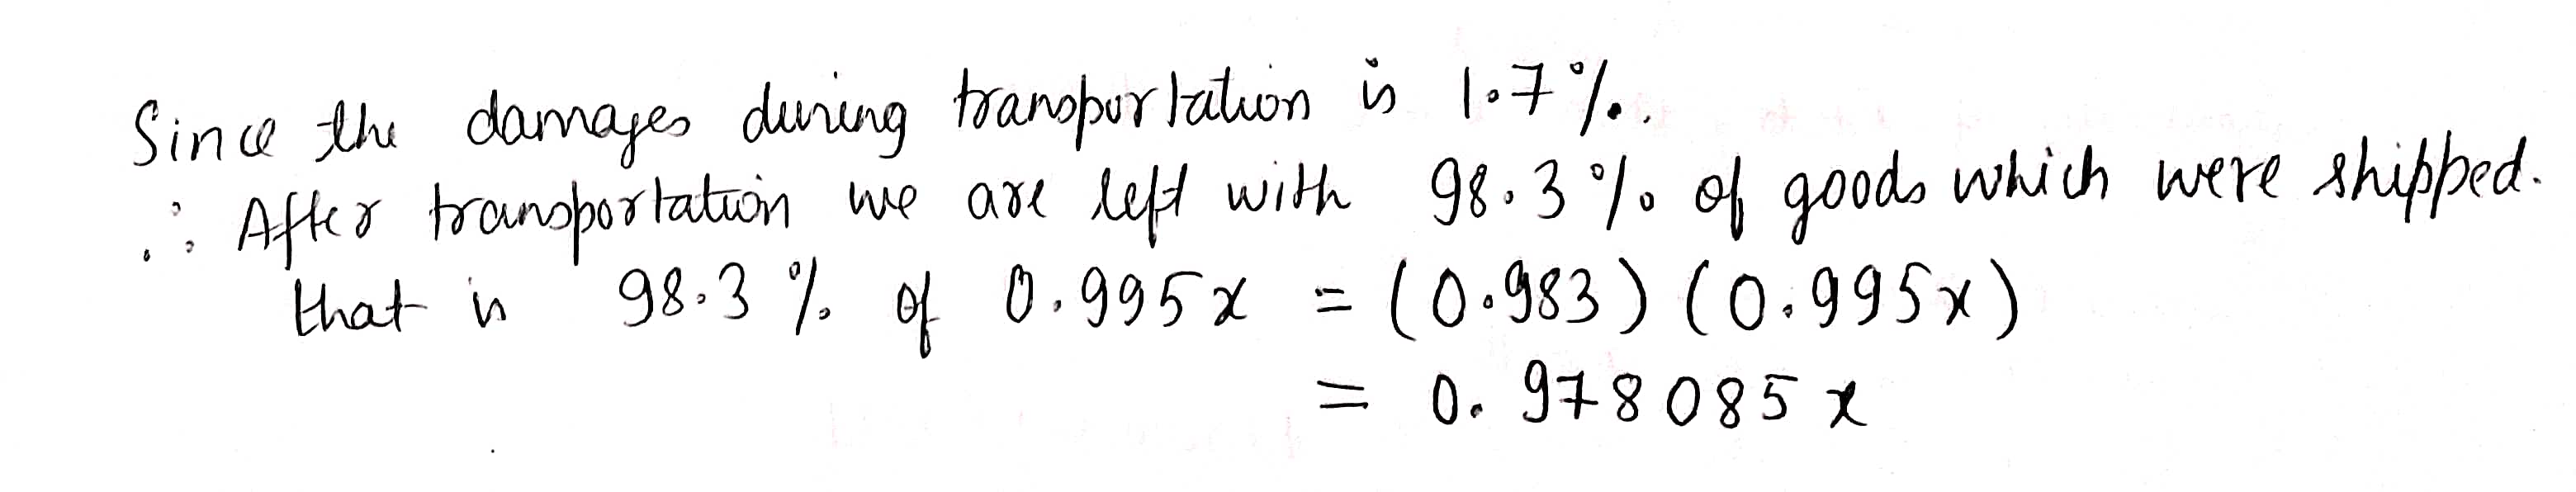 Since the damages during transportation is 1.7%.
∴ After transportation we are left with 98.3% of goods which were shipped.
that is 98.3% of 0.995x = (0.983) (0.995x)
= 0.978085x